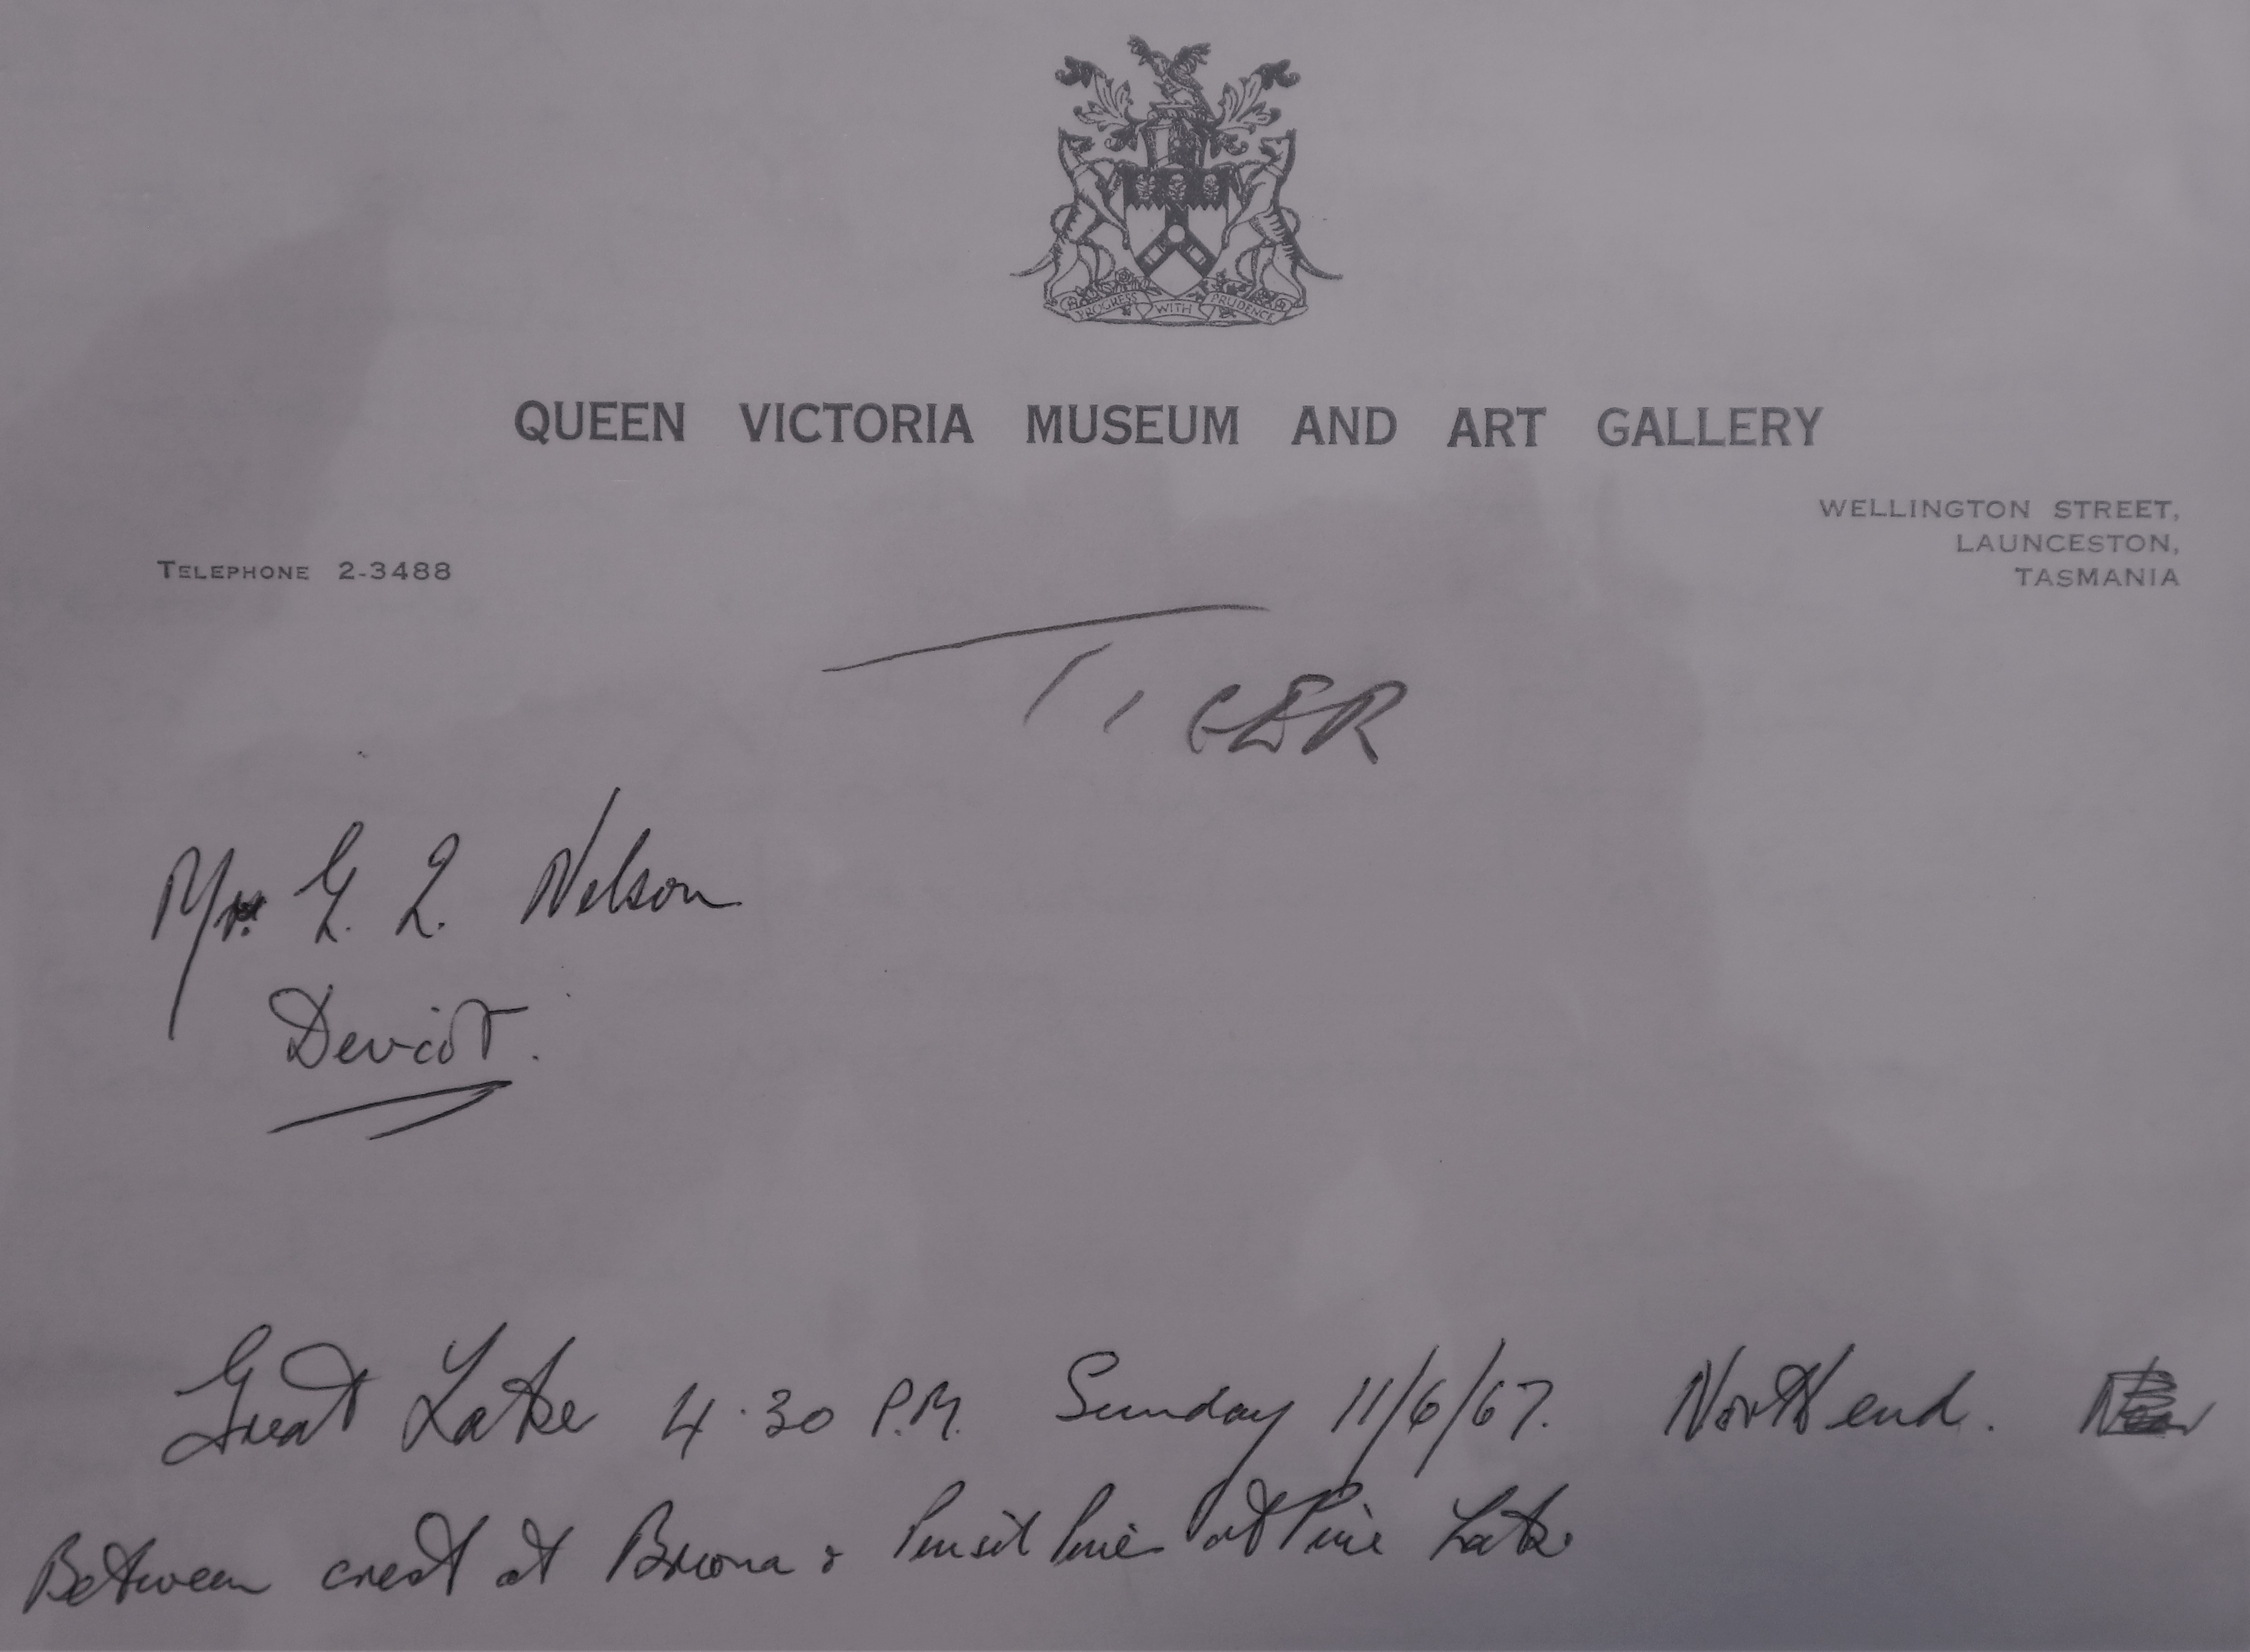 PROGRESS WITH PRUDENCE
QUEEN VICTORIA MUSEUM AND ART GALLERY
WELLINGTON STREET,
LAUNCESTON,
TASMANIA
TELEPHONE 2-3488
TIGER
Mr. G. L. Nelson
Deviot.
Great Lake 4.30 P.M. Sunday 11/6/67. North end.
Between crest at Breona & Pencil Pines at Pine Lake